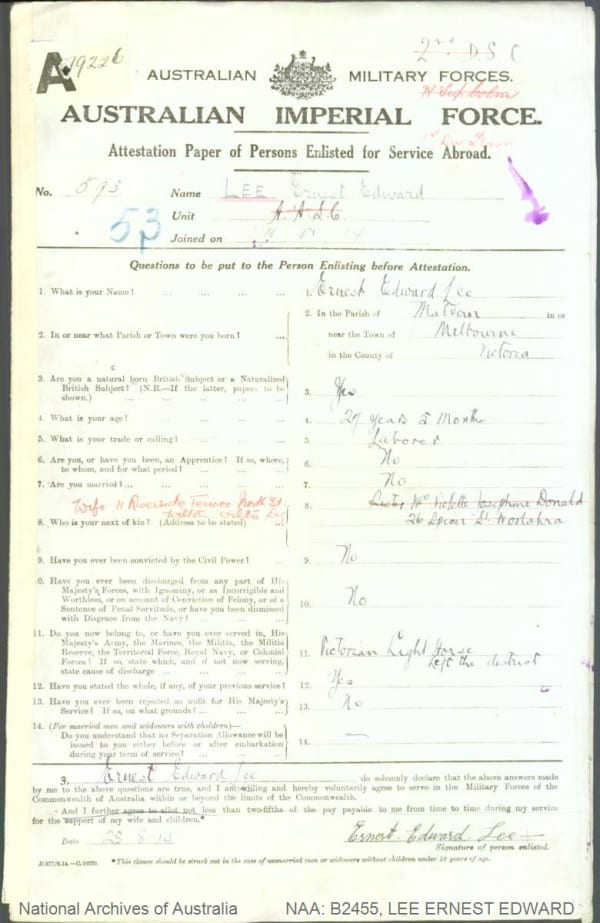 A 19226
2nd D S C
AUSTRALIAN MILITARY FORCES.
AUSTRALIAN IMPERIAL FORCE.
Attestation Paper of Persons Enlisted for Service Abroad.
No. 593 Name LEE Ernest Edward
53 Unit A.A.S.C.
Joined on
Questions to be put to the Person Enlisting before Attestation.
1. What is your Name? ... ... ... ... 1. Ernest Edward Lee
2. In or near what Parish or Town were you born? ... ... 2. In the Parish of Malvern in or
near the Town of Melbourne
in the County of Victoria
3. Are you a natural born British Subject or a Naturalized
British Subject? (N.B.—If the latter, papers to be
shown.) ... ... ... ... 3. Yes
4. What is your age? ... ... ... ... 4. 27 years 5 Month
5. What is your trade or calling? ... ... ... 5. Laborer
6. Are you, or have you been, an Apprentice? If so, where,
to whom, and for what period? ... ... ... 6. No
7. Are you married? ... ... ... ... 7. No
Wife 11 Riverside Terrace North St.
Wilton Wilts Eng
8. Who is your next of kin? (Address to be stated) ... 8. Sister Mrs Violette Josephine Donald
26 Spicer St Woolahra
9. Have you ever been convicted by the Civil Power? ... 9. No
0. Have you ever been discharged from any part of His
Majesty's Forces, with Ignominy, or as Incorrigible and
Worthless, or on account of Conviction of Felony, or of a
Sentence of Penal Servitude, or have you been dismissed
with Disgrace from the Navy? ... ... ... 10. No
11. Do you now belong to, or have you ever served in, His
Majesty's Army, the Marines, the Militia, the Militia
Reserve, the Territorial Force, Royal Navy, or Colonial
Forces? If so, state which, and if not now serving,
state cause of discharge ... ... ... 11. Victorian Light Horse
Left the district
12. Have you stated the whole, if any, of your previous service? 12. Yes
13. Have you ever been rejected as unfit for His Majesty's
Service? If so, on what grounds? ... ... ... 13. No
14. (For married men and widowers with children)—
Do you understand that no Separation Allowance will be
issued to you either before or after embarkation
during your term of service? ... ... ... 14. —
3. Ernest Edward Lee do solemnly declare that the above answers made
by me to the above questions are true, and I am willing and hereby voluntarily agree to serve in the Military Forces of the
Commonwealth of Australia within or beyond the limits of the Commonwealth.
And I further agree to allot not less than two-fifths of the pay payable to me from time to time during my service
for the support of my wife and children.*
Date 25 8 14 Ernest Edward Lee
Signature of person enlisted.
D.377/8.14.—C.10220. *This clause should be struck out in the case of unmarried men or widowers without children under 18 years of age.
National Archives of Australia NAA: B2455, LEE ERNEST EDWARD